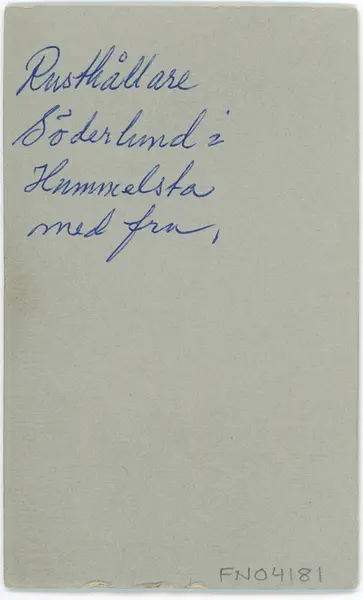 Rusthållare
Söderlund i
Hummelsta
med fru,
FN04181